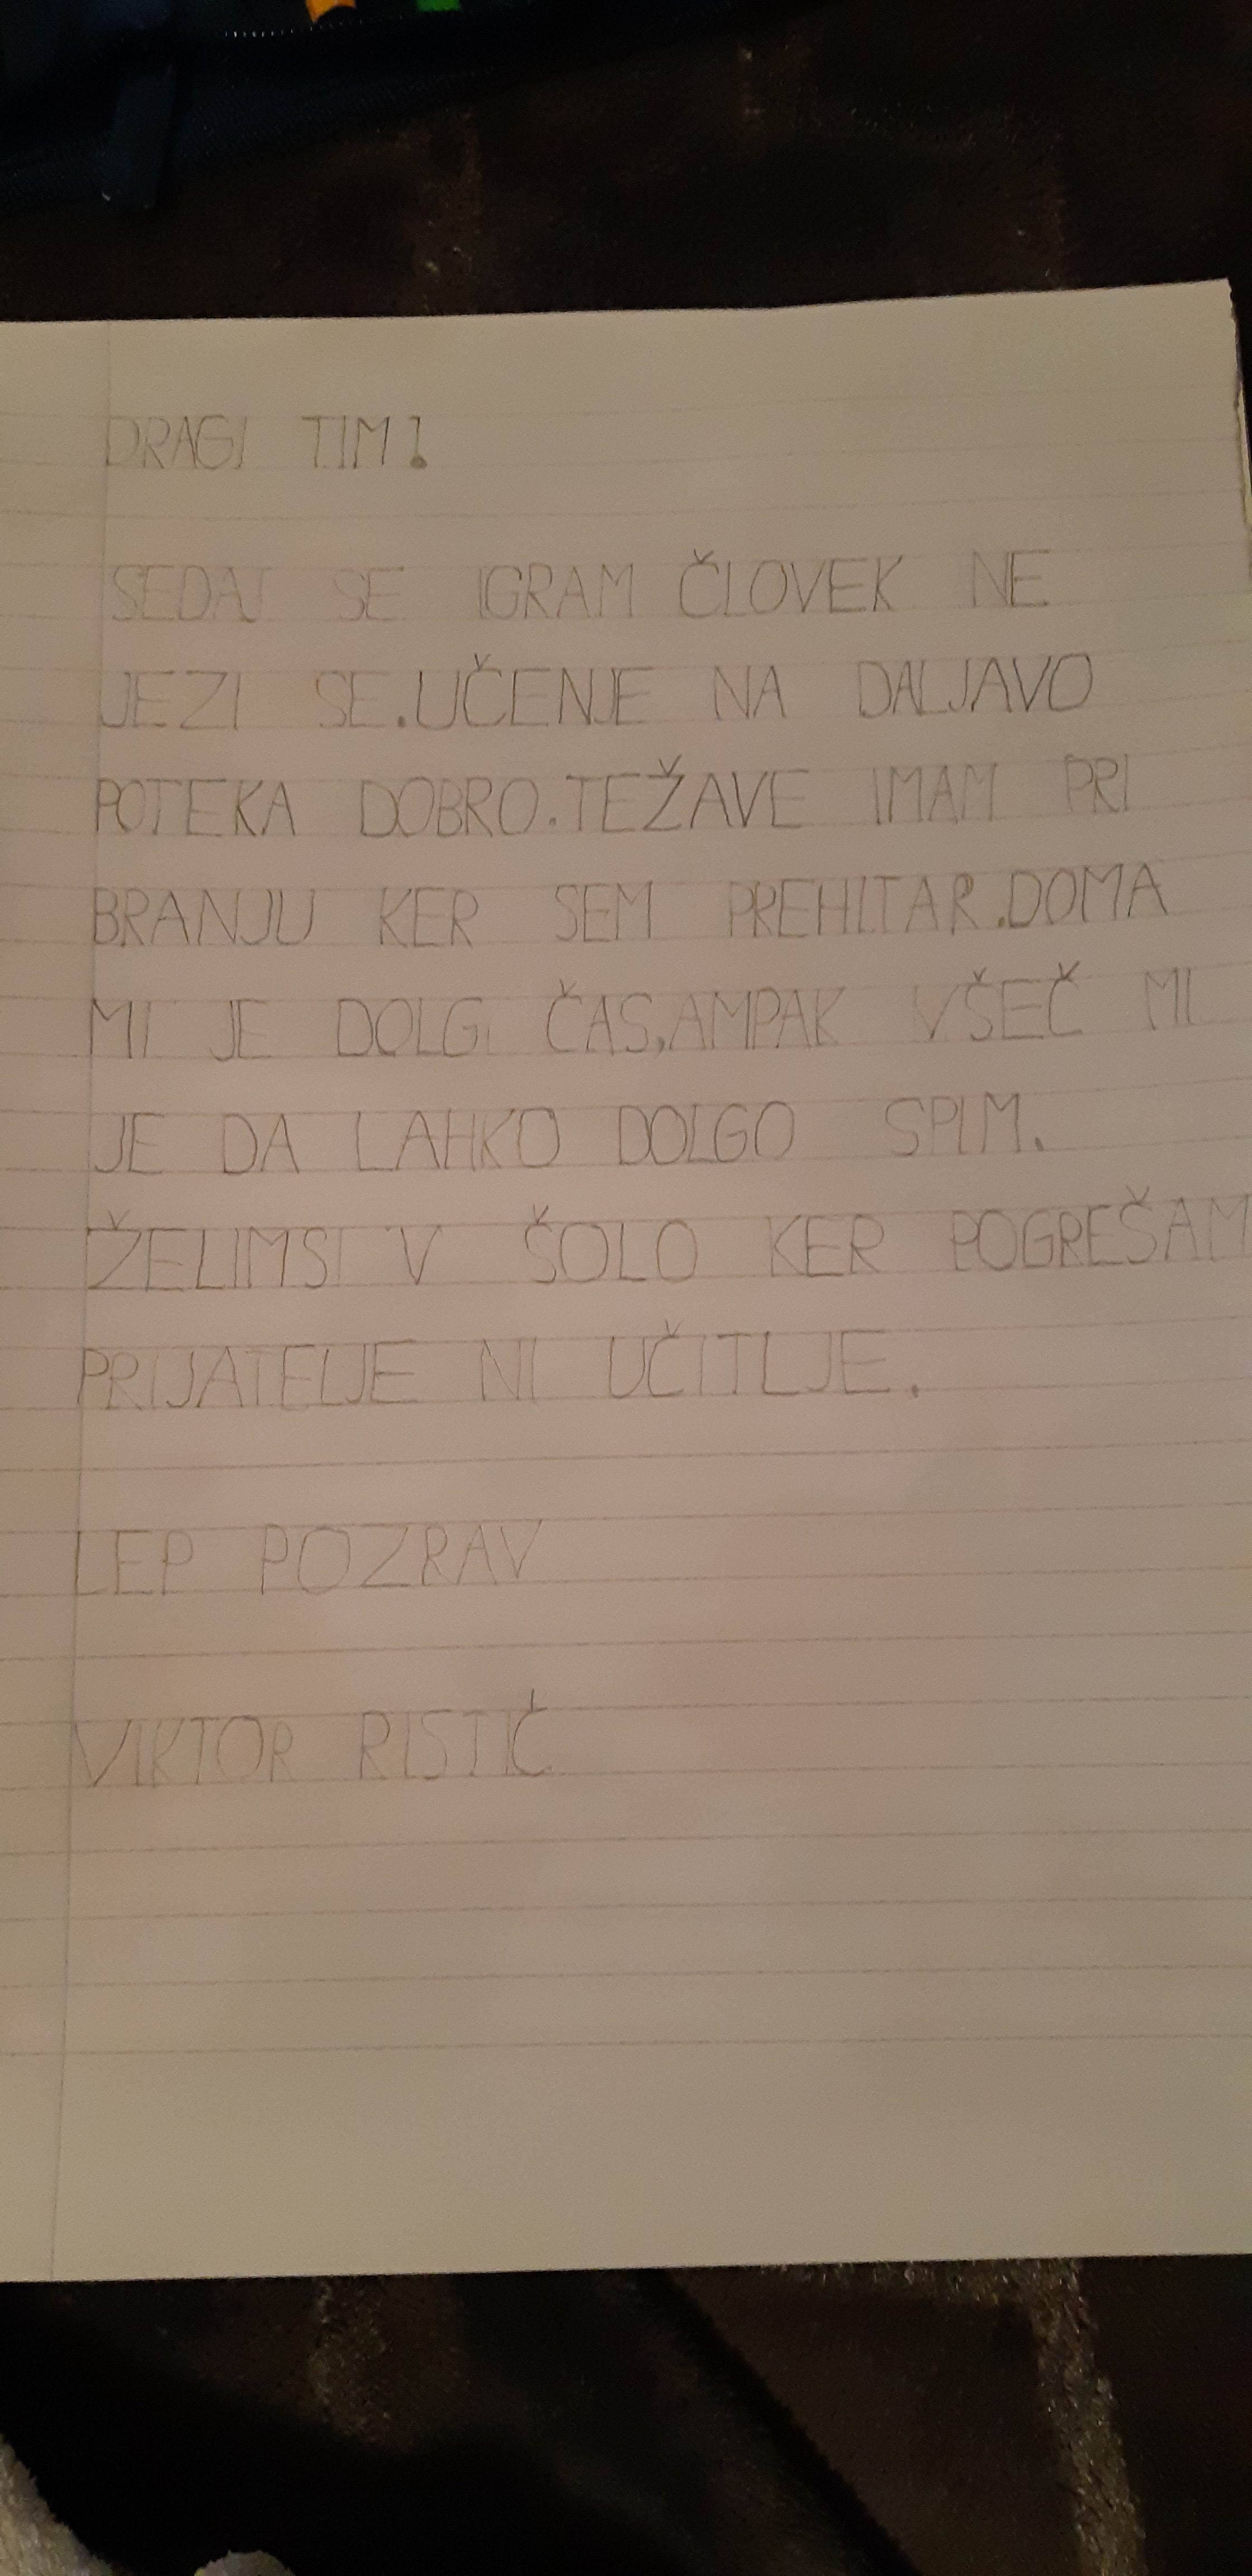 DRAGI TIM!
SEDAJ SE IGRAM ČLOVEK NE
JEZI SE.UČENJE NA DALJAVO
POTEKA DOBRO.TEŽAVE IMAM PRI
BRANJU KER SEM PREHITAR.DOMA
MI JE DOLG ČAS,AMPAK VŠEČ MI
JE DA LAHKO DOLGO SPIM.
ŽELIMSI V ŠOLO KER POGREŠAM
PRIJATELJE NI UČITLJE.
LEP POZRAV
VIKTOR RISTIČ